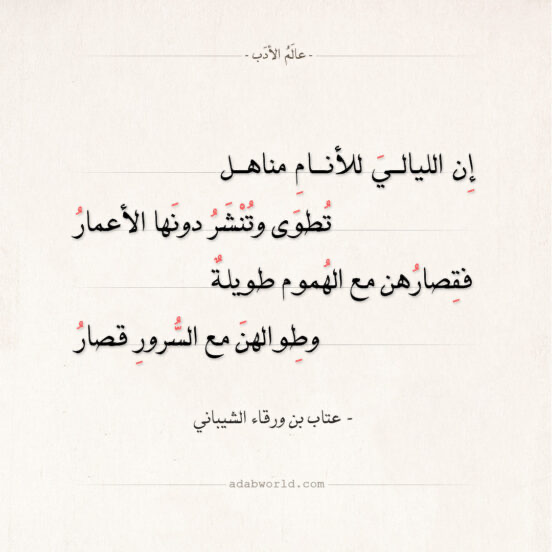 - عالَمُ الأدَب -
إِن الليالـيَ للأنـامِ مناهـل
تُطوَى وتُنْشَرُ دونَها الأعمارُ
فقِصارُهن مع الهُموم طويلةٌ
وطِوالهنَ مع السُّرورِ قصارُ
- عتاب بن ورقاء الشيباني
adabworld.com